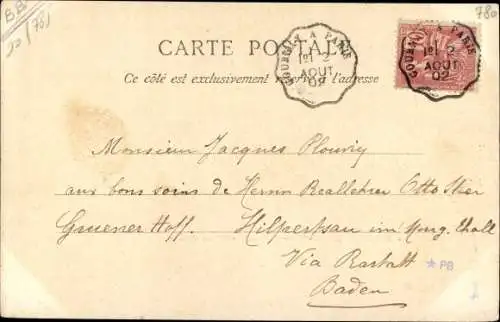 BB
781
780
GOURNAY A PARIS
1E 2
AOUT
02
GOURNAY A PARIS
1E 2
AOUT
02
CARTE POSTALE
Ce côté est exclusivement réservé à l'adresse
Monsieur Jacques Plouviy
aux bons soins de Herrn Reallehrer Otto
Gruener Hoff. Hilpertsau im Murg. thall
Via Rastatt
* PB
Baden